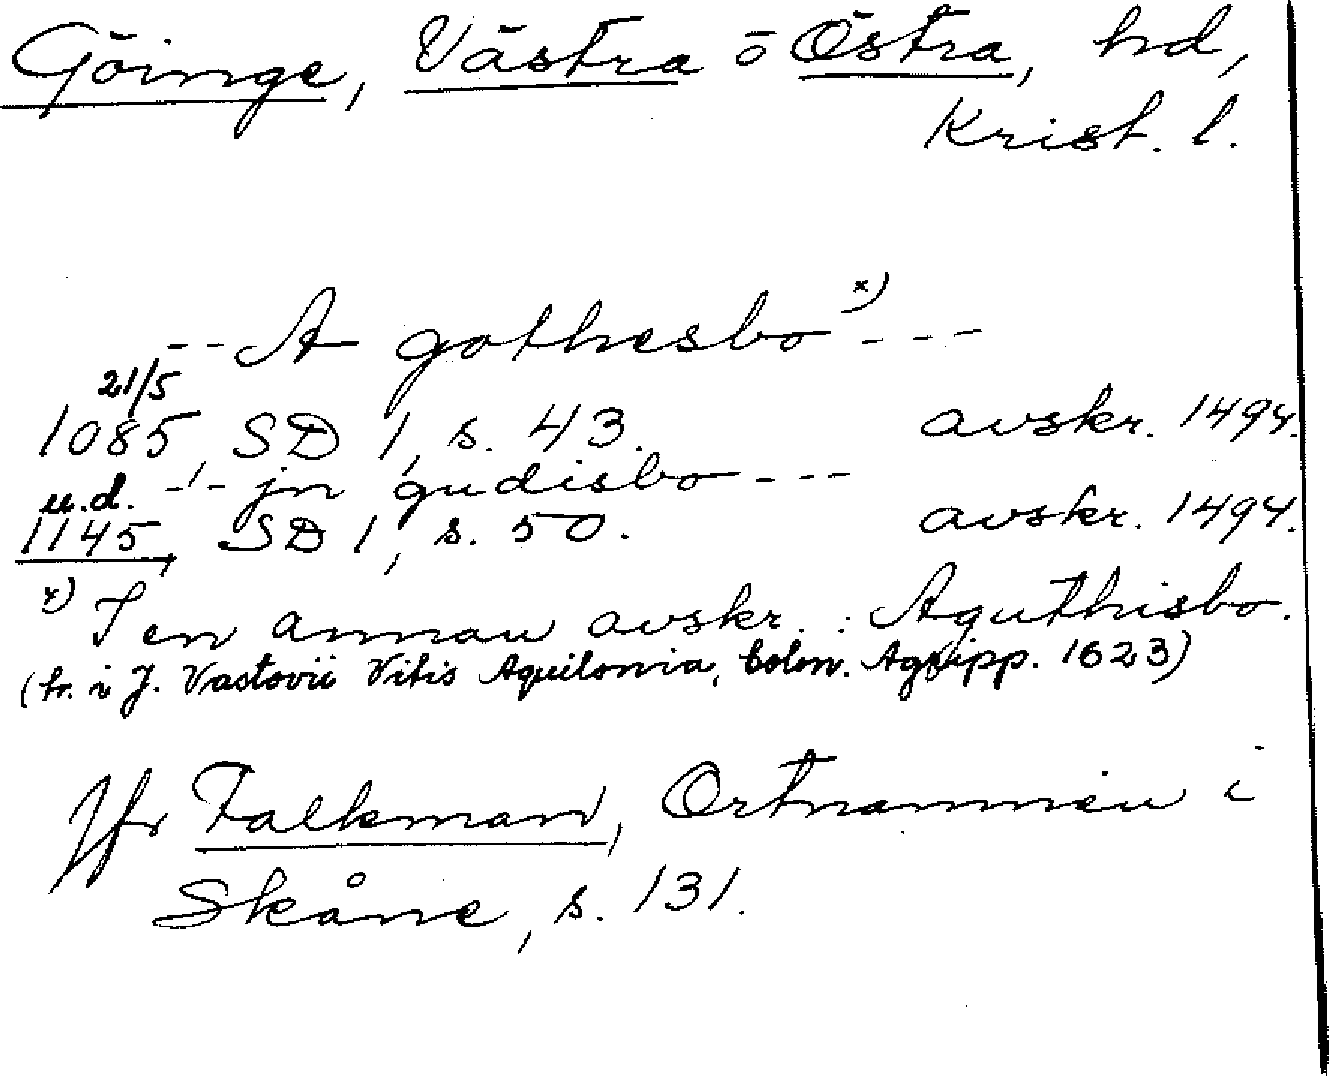 Göinge, Västra o Östra, hd,
Krist. l.
--- A gothesbo x) ---
21/5
1085, SD 1, s. 43. avskr. 1494.
--- jn gudisbo ---
u.d.
1145, SD 1, s. 50. avskr. 1494.
x) I en annan avskr.: Aguthisbo.
(tr. i J. Vastovii Vitis Aquilonia, Colon. Agripp. 1623)
Jfr Falkman, Ortnamnen i
Skåne, s. 131.